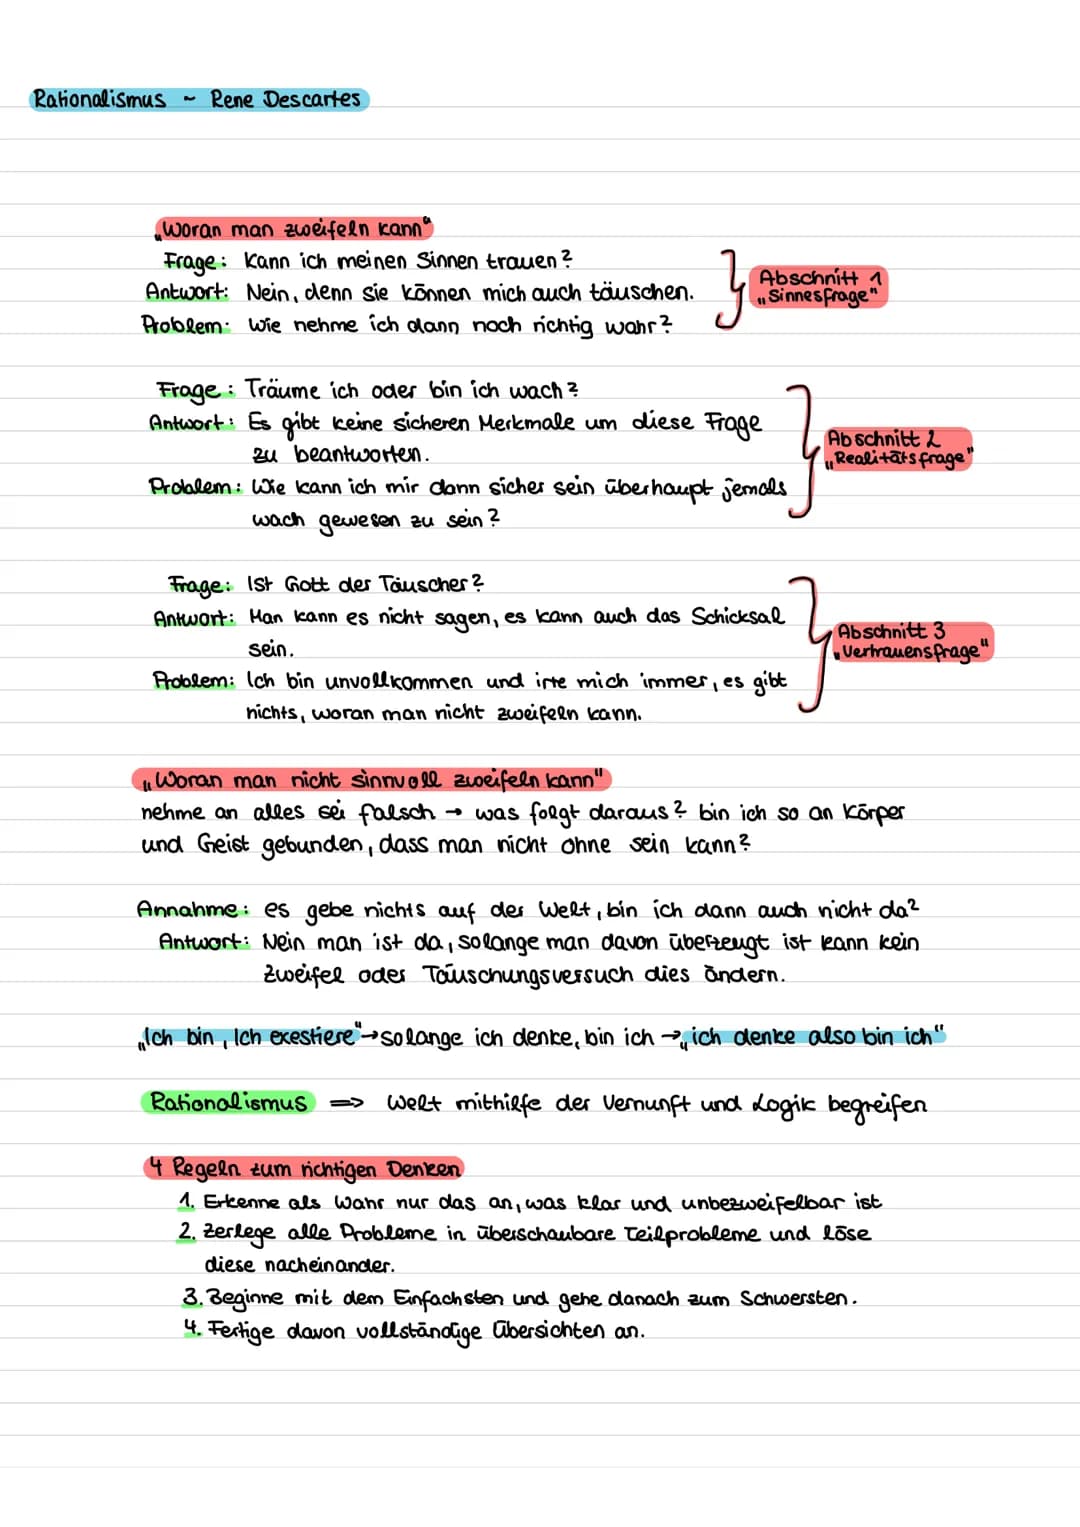 Rationalismus ~ Rene Descartes
„Woran man zweifeln kann“
Frage: Kann ich meinen Sinnen trauen?
Antwort: Nein, denn sie können mich auch täuschen.
Problem: Wie nehme ich dann noch richtig wahr?
Abschnitt 1
„Sinnesfrage"
Frage: Träume ich oder bin ich wach?
Antwort: Es gibt keine sicheren Merkmale um diese Frage
zu beantworten.
Problem: Wie kann ich mir dann sicher sein überhaupt jemals
wach gewesen zu sein?
Abschnitt 2
„Realitätsfrage"
Frage: Ist Gott der Täuscher?
Antwort: Man kann es nicht sagen, es kann auch das Schicksal
sein.
Problem: Ich bin unvollkommen und irre mich immer, es gibt
nichts, woran man nicht zweifeln kann.
Abschnitt 3
„Vertrauensfrage"
„Woran man nicht sinnvoll zweifeln kann"
nehme an alles sei falsch → was folgt daraus? bin ich so an Körper
und Geist gebunden, dass man nicht ohne sein kann?
Annahme: es gebe nichts auf der Welt, bin ich dann auch nicht da?
Antwort: Nein man ist da, solange man davon überzeugt ist kann kein
Zweifel oder Täuschungsversuch dies ändern.
„Ich bin, Ich exestiere" → solange ich denke, bin ich → „ich denke also bin ich"
Rationalismus => Welt mithilfe der Vernunft und Logik begreifen
4 Regeln zum richtigen Denken
1. Erkenne als Wahr nur das an, was klar und unbezweifelbar ist
2. Zerlege alle Probleme in überschaubare Teilprobleme und löse
diese nacheinander.
3. Beginne mit dem Einfachsten und gehe danach zum Schwersten.
4. Fertige davon vollständige Übersichten an.